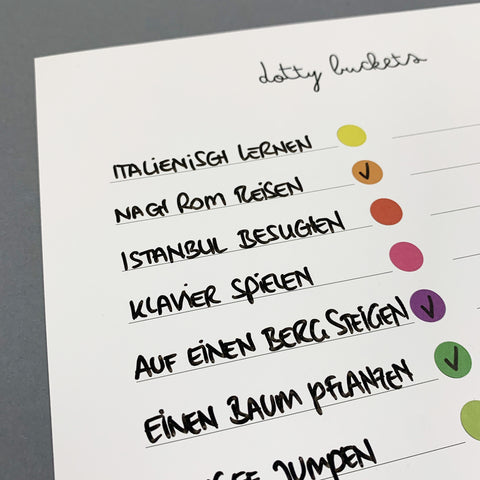 dotty buckets
ITALIENISCH LERNEN
NACH ROM REISEN
ISTANBUL BESUCHEN
KLAVIER SPIELEN
AUF EINEN BERG STEIGEN
EINEN BAUM PFLANZEN
JUMPEN